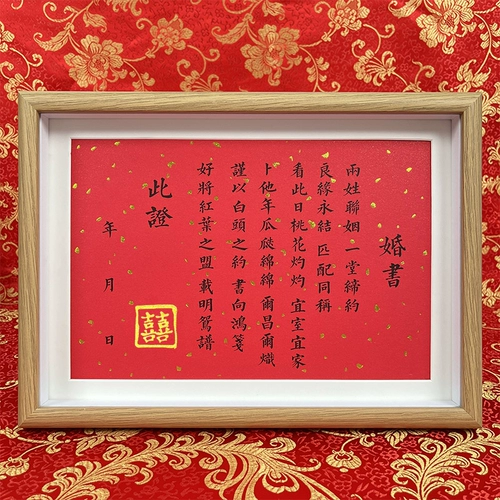 婚書
兩姓聯姻 一堂締約
良緣永結 匹配同稱
看此日桃花灼灼 宜室宜家
卜他年瓜瓞綿綿 爾昌爾熾
謹以白頭之約 書向鴻箋
好將紅葉之盟 載明鴛譜
此證
年 月 日
囍